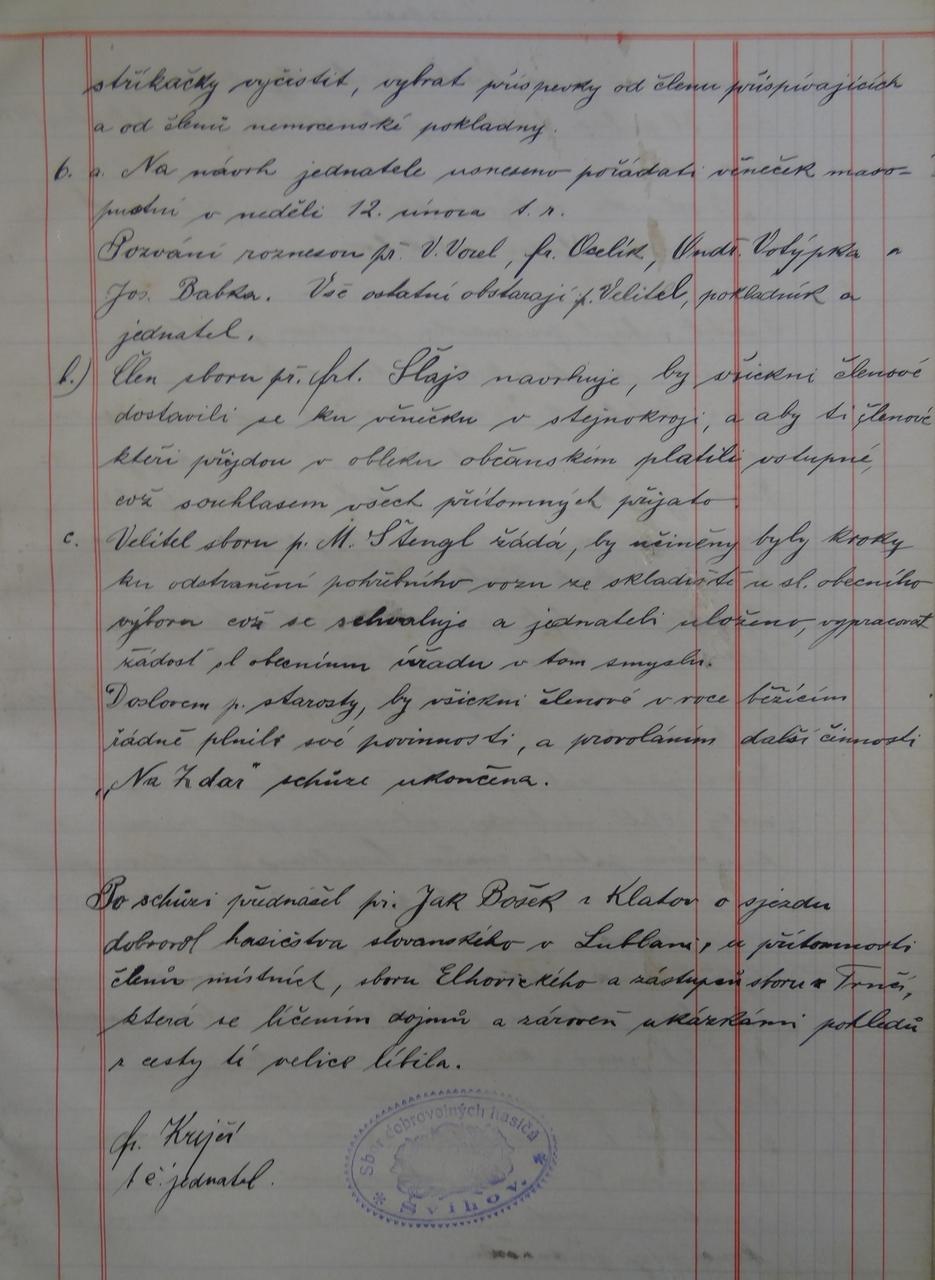 stříkačky vyčistit, vybrat příspevky od členu přispívajících
a od členů nemocenské pokladny.
6. a. Na návrh jednatele usneseno pořádati věneček maso-
pustní v neděli 12. února t. r.
Pozvání roznesou př. V. Vozel, fr. Ocelík, Ondř. Votýpka a
Jos. Babka. Vše ostatní obstarají p. Velitel, pokladník a
jednatel.
b.) Člen sboru př. frt. Šlajs navrhuje, by všickni členové
dostavili se ku věnečku v stejnokroji, a aby ti členové
kteři přijdou v obleku občanském platili vstupné,
což souhlasem všech přítomných přijato
c. Velitel sboru p. M. Štengl žádá, by učiněny byly kroky
ku odstranění pohřebního vozu ze skladiště u sl. obecního
výboru což se schvaluje a jednateli uloženo, vypracovat
žádost sl obecnímu úřadu v tom smyslu.
Doslovem p. starosty, by všickni členové v roce běžícím
řádně plnili své povinnosti, a provoláním další činnosti
„Na Zdar" schůze ukončena.
Po schůzi přednášel př. Jak Bošek z Klatov o sjezdu
dobrovol hasičstva slovanského v Lublani, u přítomnosti
členů místních, sboru Elhovického a zástupců sboru z Trnčí,
která se líčením dojmů a zároveň ukázkámi pohledů
z cesty té velice líbila.
fr. Krejčí
t č. jednatel.
Sbor dobrovolných hasičů
* Švihov. *